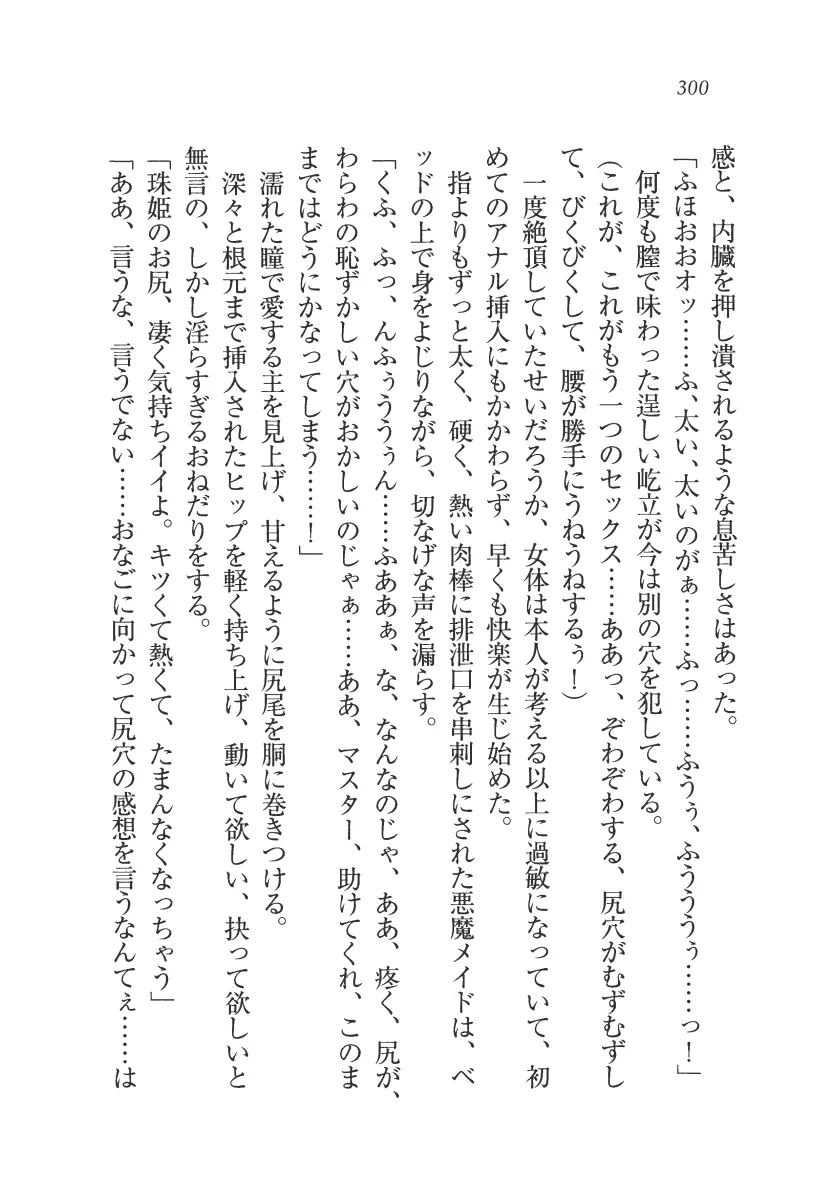 300
感と、内臓を押し潰されるような息苦しさはあった。
「ふほおおオッ……ふ、太い、太いのがぁ……ふっ……ふうぅ、ふうううぅ……っ！」
何度も膣で味わった逞しい屹立が今は別の穴を犯している。
（これが、これがもう一つのセックス……ああっ、ぞわぞわする、尻穴がむずむずし
て、びくびくして、腰が勝手にうねうねするぅ！）
一度絶頂していたせいだろうか、女体は本人が考える以上に過敏になっていて、初
めてのアナル挿入にもかかわらず、早くも快楽が生じ始めた。
指よりもずっと太く、硬く、熱い肉棒に排泄口を串刺しにされた悪魔メイドは、ベ
ッドの上で身をよじりながら、切なげな声を漏らす。
「くふ、ふっ、んふぅううぅん……ふああぁ、な、なんなのじゃ、ああ、疼く、尻が、
わらわの恥ずかしい穴がおかしいのじゃぁ……ああ、マスター、助けてくれ、このま
まではどうにかなってしまう……！」
濡れた瞳で愛する主を見上げ、甘えるように尻尾を胴に巻きつける。
深々と根元まで挿入されたヒップを軽く持ち上げ、動いて欲しい、抉って欲しいと
無言の、しかし淫らすぎるおねだりをする。
「珠姫のお尻、凄く気持ちイイよ。キツくて熱くて、たまんなくなっちゃう」
「ああ、言うな、言うでない……おなごに向かって尻穴の感想を言うなんてぇ……は